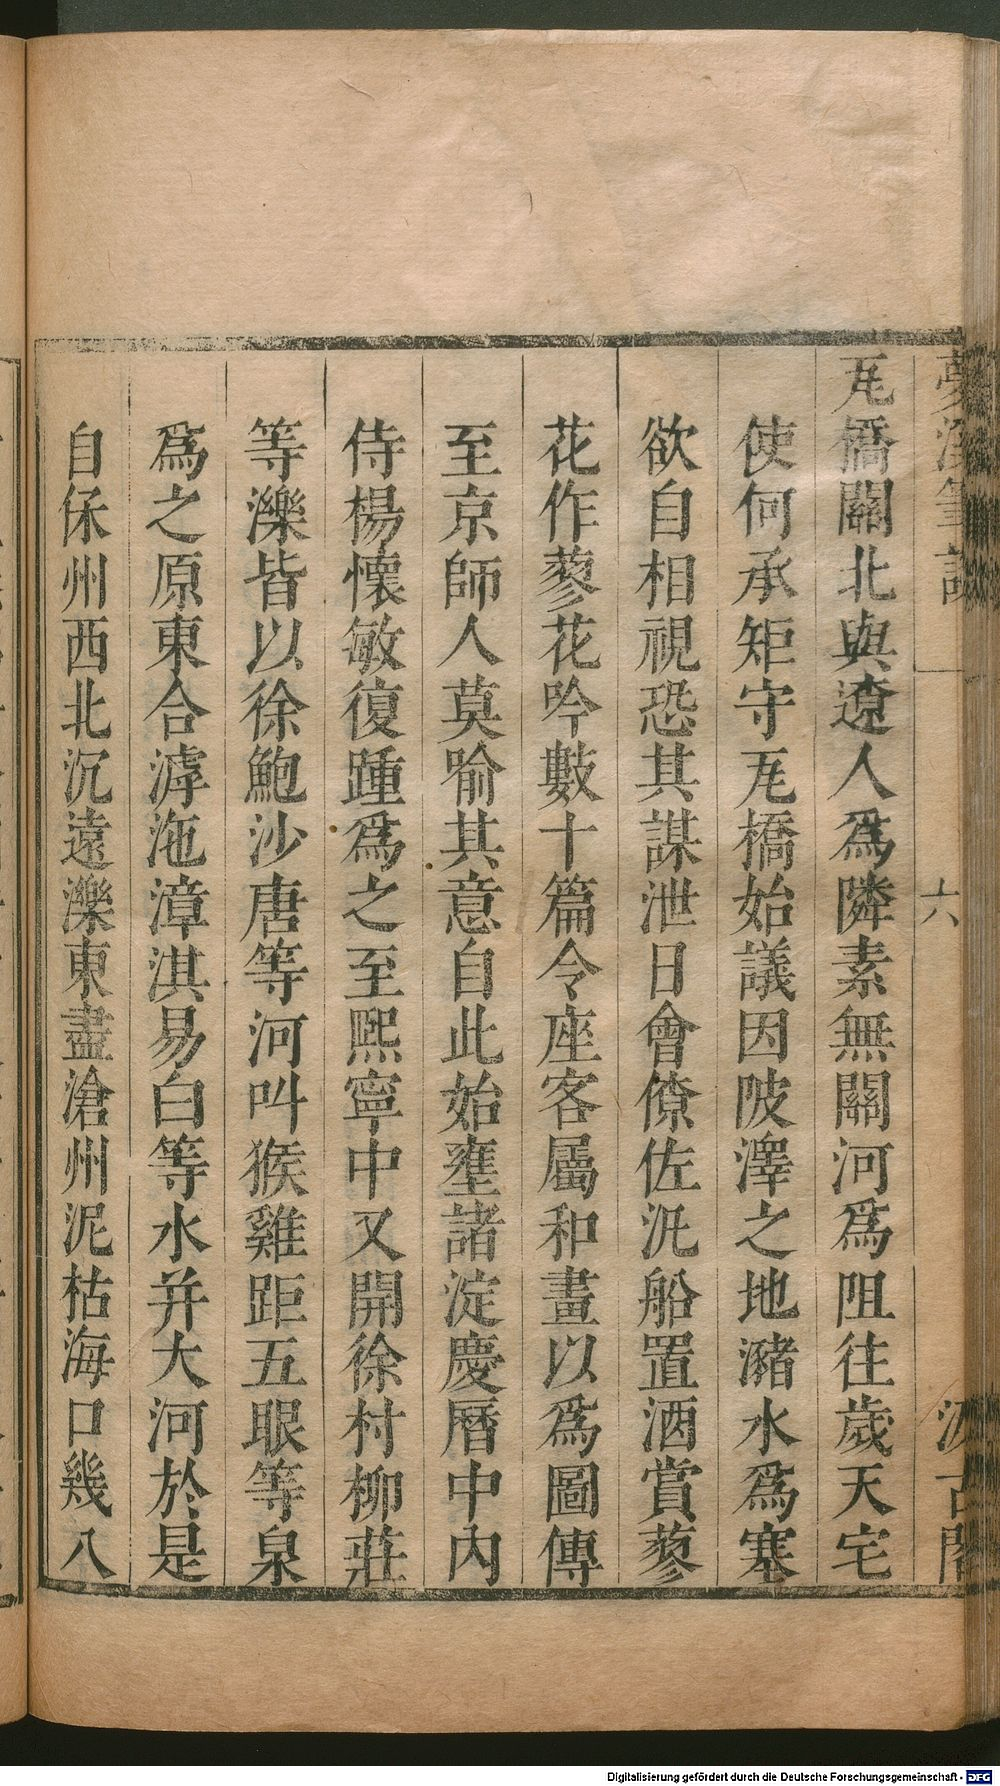 夢溪筆談
六
汲古閣
瓦橋關北與遼人爲隣素無關河爲阻往歲六宅
使何承矩守瓦橋始議因陂澤之地瀦水爲塞
欲自相視恐其謀泄日會僚佐汎船置酒賞蓼
花作蓼花吟數十篇令座客屬和畫以爲圖傳
至京師人莫喻其意自此始壅諸淀慶曆中內
侍楊懷敏復踵爲之至熙寧中又開徐村柳莊
等濼皆以徐鮑沙唐等河叫猴雞距五眼等泉
爲之原東合滹沲漳淇易白等水并大河於是
自保州西北沉遠濼東盡滄州泥枯海口幾八
Digitalisierung gefördert durch die Deutsche Forschungsgemeinschaft - DFG